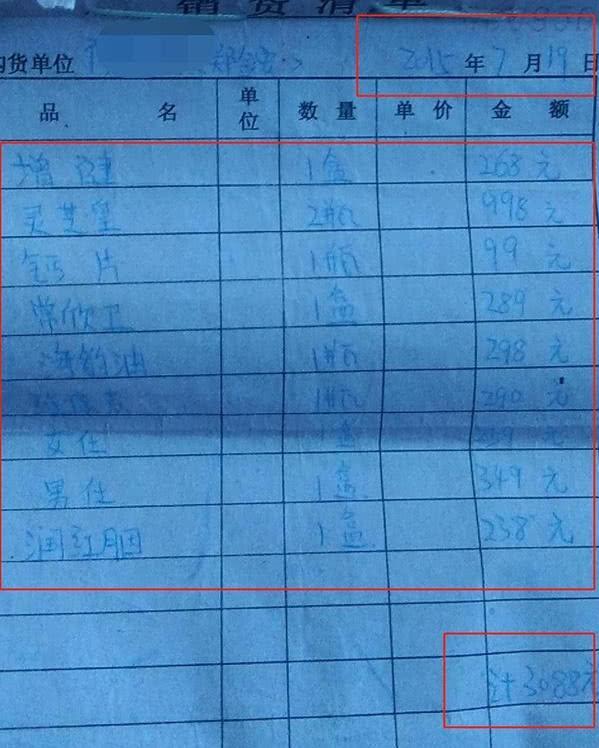 销货清单
购货单位 2015年7月19日
品名 单位 数量 单价 金额
增健 1盒 268元
灵芝皇 2瓶 998元
钙片 1瓶 99元
常欣卫 1盒 289元
海豹油 1瓶 298元
1瓶 290元
女仕 1盒 259元
男仕 1盒 349元
润红胭 1盒 238元
计3088元